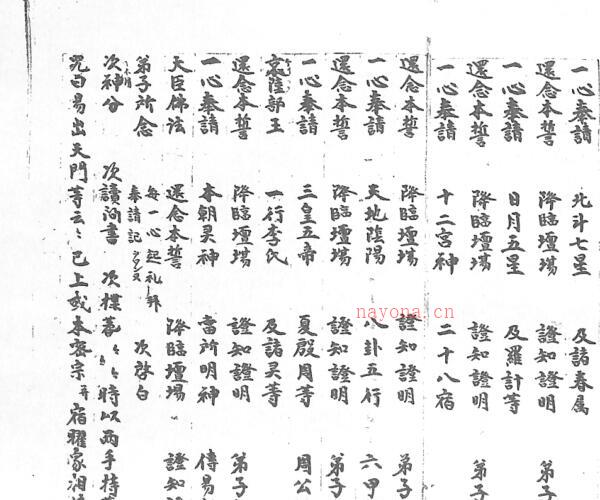 一心奉請 北斗七星 及諸眷属
還念本誓 降臨壇場 證知證明 弟子
一心奉請 日月五星 及羅計等
還念本誓 降臨壇場 證知證明 弟子
一心奉請 十二宮神 二十八宿
還念本誓 降臨壇場 證知證明 弟子
一心奉請 天地陰陽 八卦五行 六甲
還念本誓 降臨壇場 證知證明 弟子
一心奉請 三皇五帝 夏殷周等 周公
京陸郎王 一行李氏 及諸昊等
還念本誓 降臨壇場 證知證明 弟子
一心奉請 本朝昊神 當所明神 傳易
大臣佛法 還念本誓 降臨壇場 證知
弟子所念 每一心起礼拜 次啓白
奉請記
次神分 次讀 書 次揲蓍 時以兩手持
咒曰易出天門等云々已上我本密宗 宿曜家相
nayona.cn